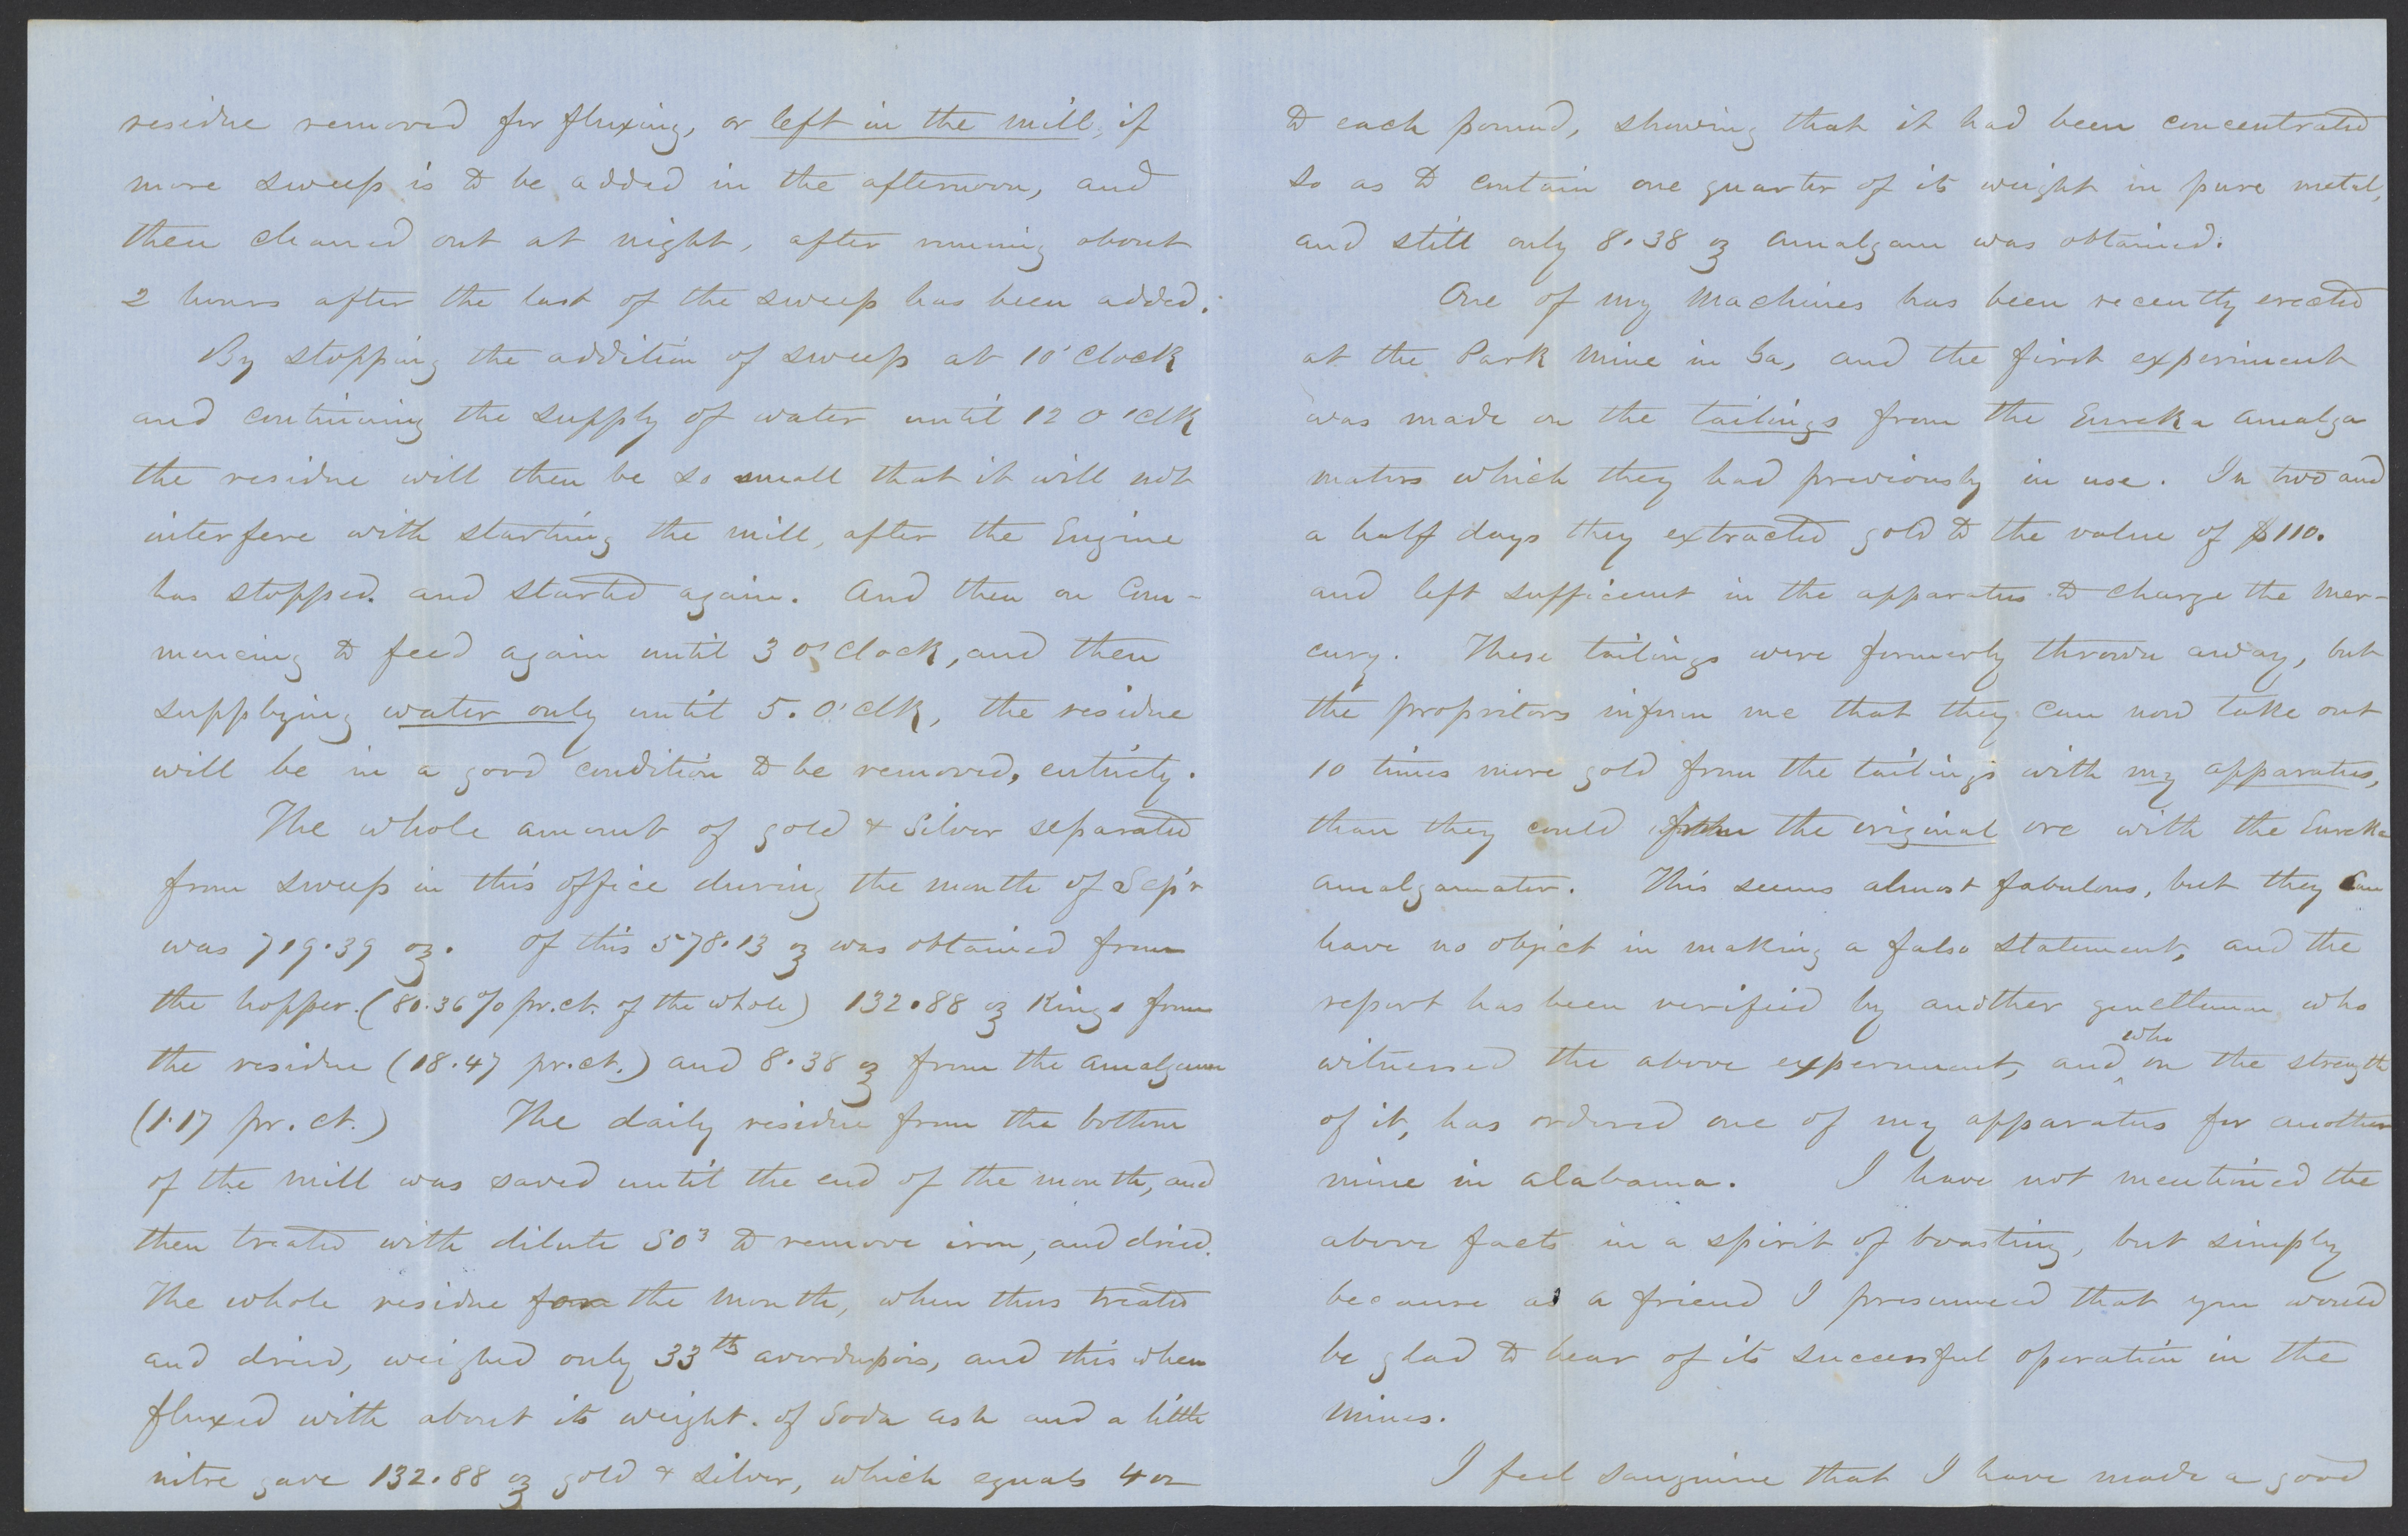 residue removed for fluxing, or left in the mill, if
more sweep is to be added in the afternoon, and
then cleaned out at night, after running about
2 hours after the last of the sweep has been added.
By stopping the addition of sweep at 10'Clock
and continuing the supply of water until 12 O'clk
the residue will then be so small that it will not
interfere with starting the mill, after the Engine
has stopped. and started again. And then on Com-
mencing to feed again until 3 O'Clock, and then
supplying water only until 5. O'clk, the residue
will be in a good condition to be removed, entirely.
The whole amount of gold & Silver separated
from sweep in this office during the month of Sep'r
was 719.39 oz. Of this 578.13 oz was obtained from
the hopper. (80.36% pr.ct. of the whole) 132.88 oz Kings from
the residue (18.47 pr.ct.) and 8.38 oz from the amalgam
(1.17 pr.ct.) The daily residue from the bottom
of the mill was saved until the end of the month, and
then treated with dilute SO3 to remove iron, and dried.
The whole residue for the month, when thus treated
and dried, weighed only 33 lb avordupois, and this when
fluxed with about its weight. of Soda ash and a little
nitre gave 132.88 oz gold & silver, which equals 4 oz
to each pound, showing that it had been concentrated
so as to contain one quarter of its weight in pure metal,
and still only 8.38 oz Amalgam was obtained.
One of my Machines has been recently erected
at the Park Mine in Ga, and the first experiment
was made on the tailings from the Eureka amalga
mators which they had previously in use. In two and
a half days they extracted gold to the value of $110.
and left sufficient in the apparatus to charge the Mer-
cury. These tailings were formerly thrown away, but
the propritors inform me that they can now take out
10 times more gold from the tailings with my apparatus,
than they could from the original ore with the Eureka
amalgamator. This seems almost fabulous, but they can
have no object in making a false statement, and the
report has been verified by another gentleman who
witnessed the above experiment, and who on the strength
of it, has ordered one of my apparatus for another
mine in Alabama. I have not mentioned the
above facts in a spirit of boasting, but simply
because as a friend I presumed that you would
be glad to hear of its successful operation in the
mines.
I feel sanguine that I have made a good